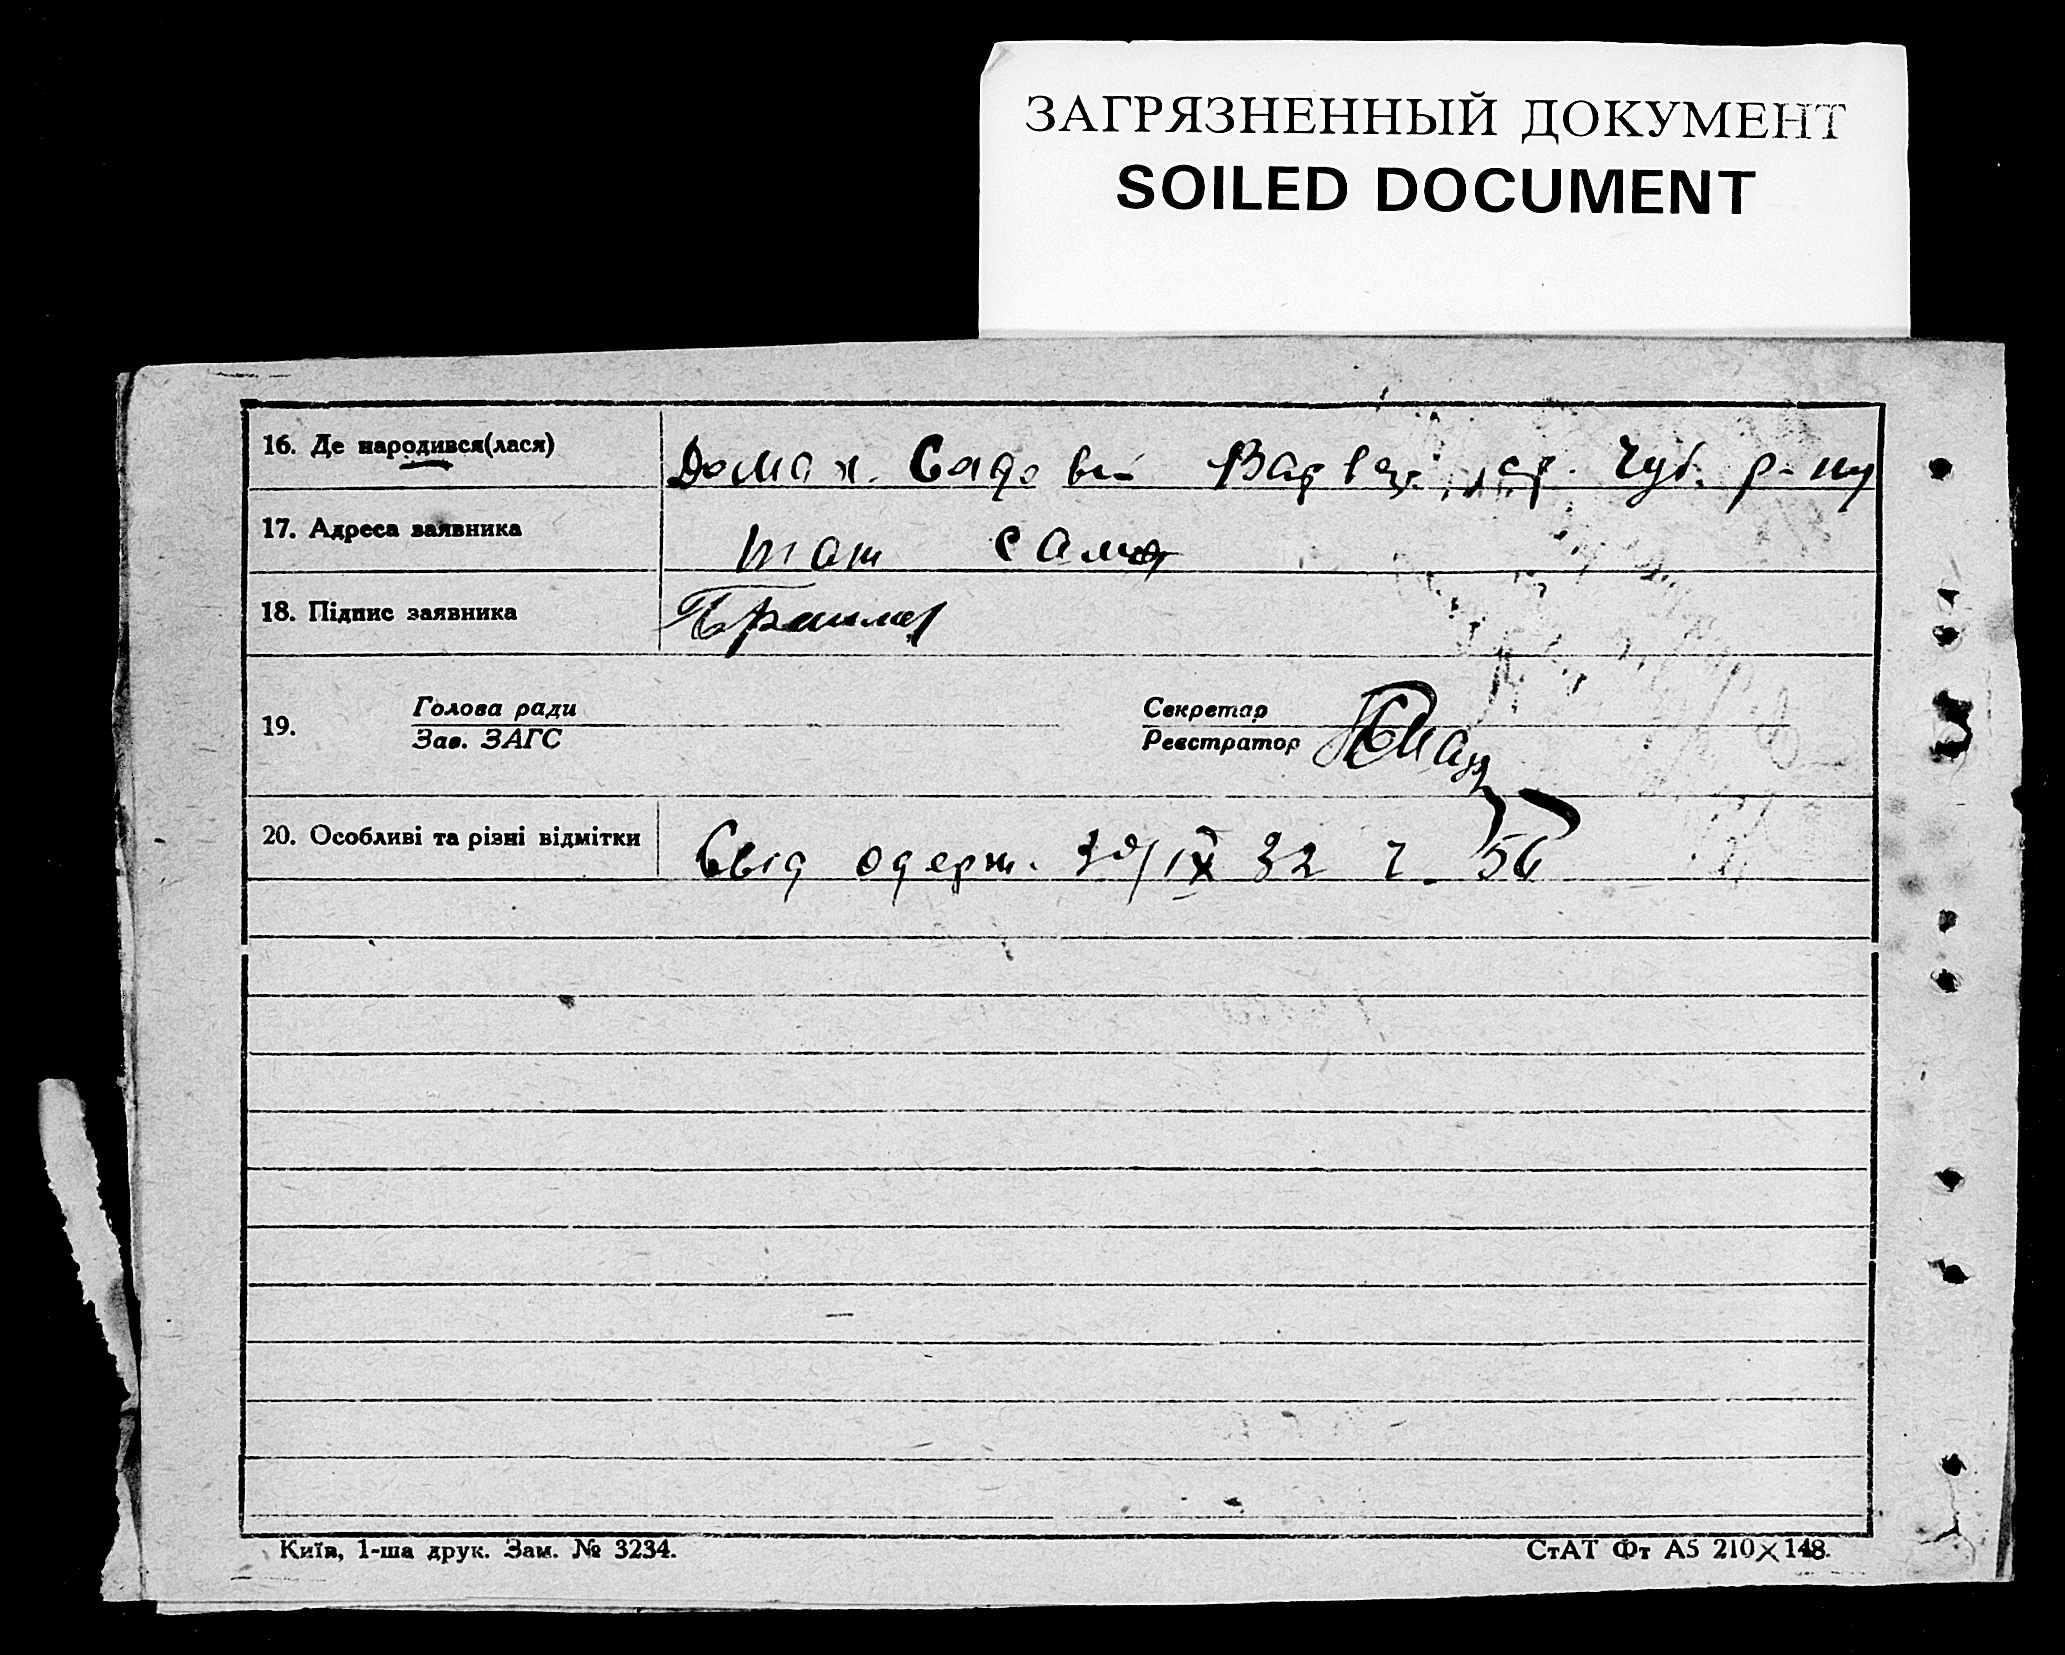 ЗАГРЯЗНЕННЫЙ ДОКУМЕНТ
SOILED DOCUMENT
16. Де народився(лася) Дома х. Садові Чуб. р-ну
17. Адреса заявника там само
18. Підпис заявника
19. Голова ради Секретар
Зав. ЗАГС Реєстратор
20. Особливі та різні відмітки Свід одерж. 30/IX 32 г. 56
Київ, 1-ша друк. Зам. № 3234. СтАТ Фт А5 210×148.